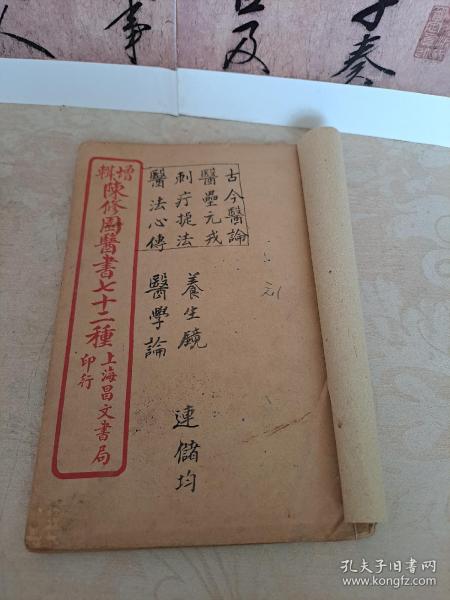 奏
事
及
人
增輯陳修園醫書七十二種
上海昌文書局
印行
古今醫論
醫壘元戎
刺疔捉法
醫法心傳
養生鏡
醫學論
連儲均
孔夫子旧书网
www.kongfz.com